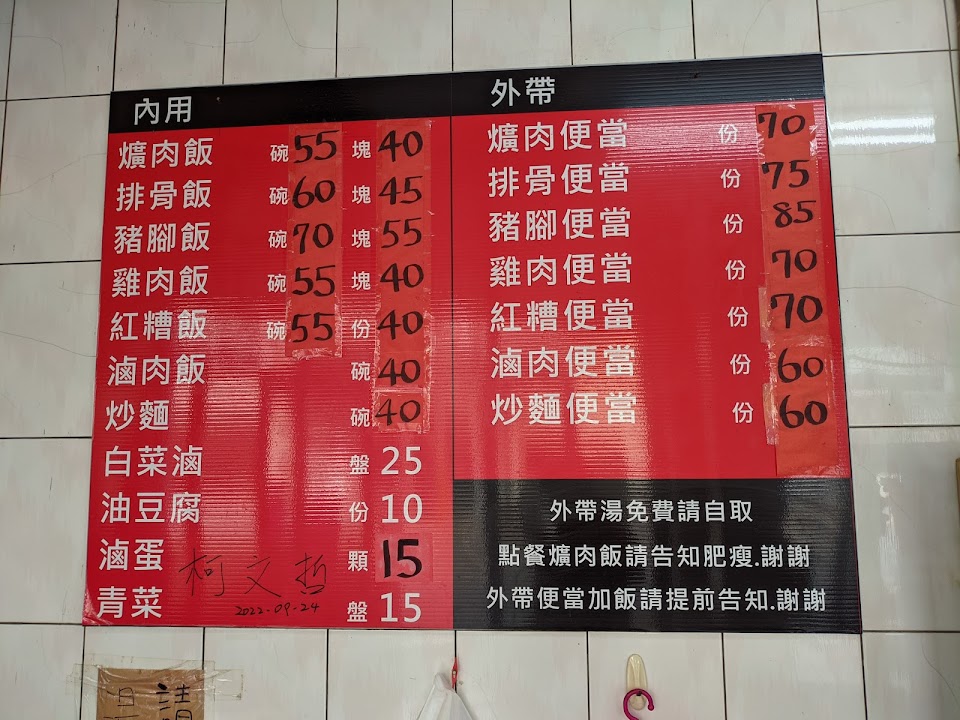 內用
爌肉飯 碗 55 塊 40
排骨飯 碗 60 塊 45
豬腳飯 碗 70 塊 55
雞肉飯 碗 55 塊 40
紅糟飯 碗 55 份 40
滷肉飯 碗 40
炒麵 碗 40
白菜滷 盤 25
油豆腐 份 10
滷蛋 顆 15
青菜 盤 15
柯文哲
2022-09-24
外帶
爌肉便當 份 70
排骨便當 份 75
豬腳便當 份 85
雞肉便當 份 70
紅糟便當 份 70
滷肉便當 份 60
炒麵便當 份 60
外帶湯免費請自取
點餐爌肉飯請告知肥瘦.謝謝
外帶便當加飯請提前告知.謝謝